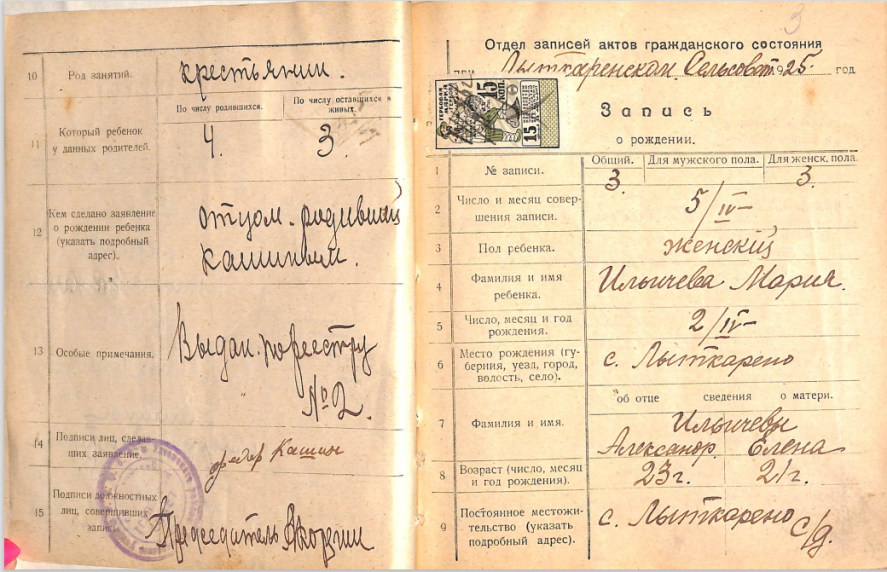 10 Род занятий. крестьянин.
По числу родившихся. По числу оставшихся в живых.
11 Который ребенок у данных родителей. 4. 3.
12 Кем сделано заявление о рождении ребенка (указать подробный адрес).
отцом. родивший
Кашиным.
13 Особые примечания. Выдан. по реестру
№ 2.
14 Подписи лиц, сделавших заявление. федор Кашин
15 Подписи должностных лиц, совершивших запись. Председатель
3
Отдел записей актов гражданского состояния
при Лыткаренском Сельсов. 1925 год
15 КОП.
15
Запись
о рождении.
Общий. Для мужского пола. Для женск. пола.
1 № записи. 3. 3.
2 Число и месяц совершения записи. 5/IV
3 Пол ребенка. женский
4 Фамилия и имя ребенка. Ильичева Мария.
5 Число, месяц и год рождения. 2/IV
6 Место рождения (губерния, уезд, город, волость, село). с. Лыткарено
об отце сведения о матери.
7 Фамилия и имя. Ильичевы
Александр. Елена
8 Возраст (число, месяц и год рождения). 23 г. 21 г.
9 Постоянное местожительство (указать подробный адрес). с. Лыткарено
с/д.